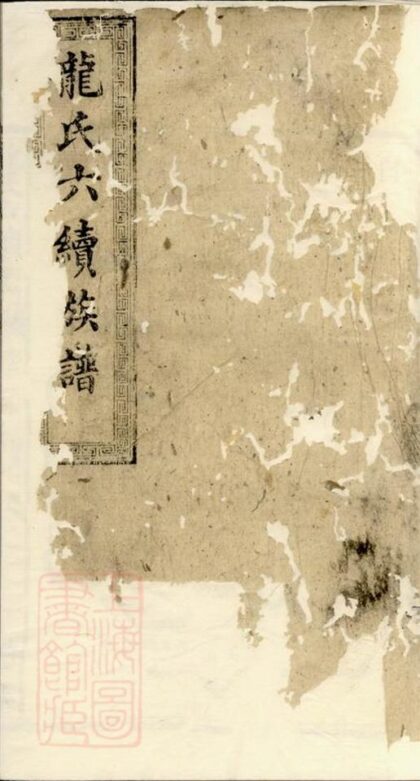 龍氏六續族譜
上海圖
書館藏